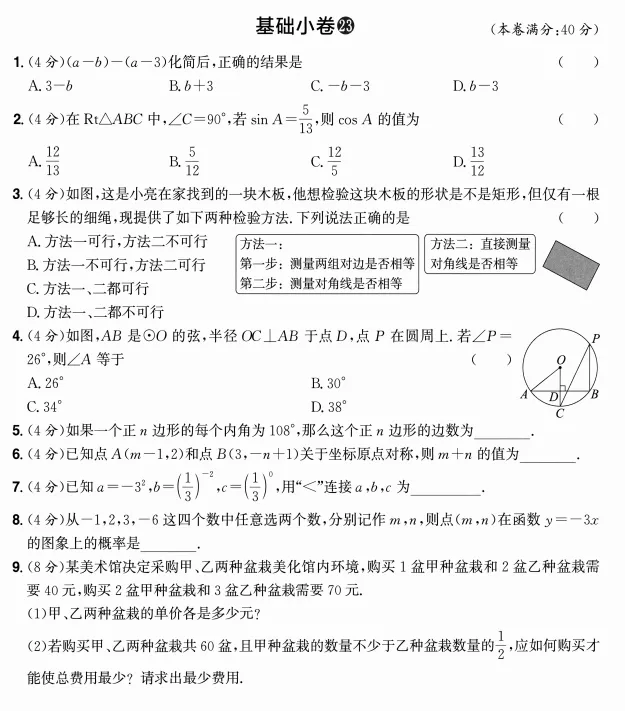 基础小卷㉓ (本卷满分:40分)
1. (4分)(a-b)-(a-3)化简后,正确的结果是 ( )
A. 3-b B. b+3 C. -b-3 D. b-3
2. (4分)在 Rt△ABC 中,∠C=90°,若 sin A=5/13,则 cos A 的值为 ( )
A. 12/13 B. 5/12 C. 12/5 D. 13/12
3. (4分)如图,这是小亮在家找到的一块木板,他想检验这块木板的形状是不是矩形,但仅有一根
足够长的细绳,现提供了如下两种检验方法. 下列说法正确的是 ( )
A. 方法一可行,方法二不可行
B. 方法一不可行,方法二可行
C. 方法一、二都可行
D. 方法一、二都不可行
方法一:
第一步:测量两组对边是否相等
第二步:测量对角线是否相等
方法二:直接测量
对角线是否相等
4. (4分)如图,AB 是⊙O 的弦,半径 OC⊥AB 于点 D,点 P 在圆周上. 若∠P=
26°,则∠A 等于 ( )
A. 26° B. 30°
C. 34° D. 38°
P
O
A
D
B
C
5. (4分)如果一个正 n 边形的每个内角为 108°,那么这个正 n 边形的边数为________.
6. (4分)已知点 A(m-1,2)和点 B(3,-n+1)关于坐标原点对称,则 m+n 的值为________.
7. (4分)已知 a=-3²,b=(1/3)⁻²,c=(1/3)⁰,用“<”连接 a,b,c 为__________.
8. (4分)从-1,2,3,-6 这四个数中任意选两个数,分别记作 m,n,则点(m,n)在函数 y=-3x
的图象上的概率是________.
9. (8分)某美术馆决定采购甲、乙两种盆栽美化馆内环境,购买 1 盆甲种盆栽和 2 盆乙种盆栽需
要 40 元,购买 2 盆甲种盆栽和 3 盆乙种盆栽需要 70 元.
(1)甲、乙两种盆栽的单价各是多少元?
(2)若购买甲、乙两种盆栽共 60 盆,且甲种盆栽的数量不少于乙种盆栽数量的1/2,应如何购买才
能使总费用最少? 请求出最少费用.